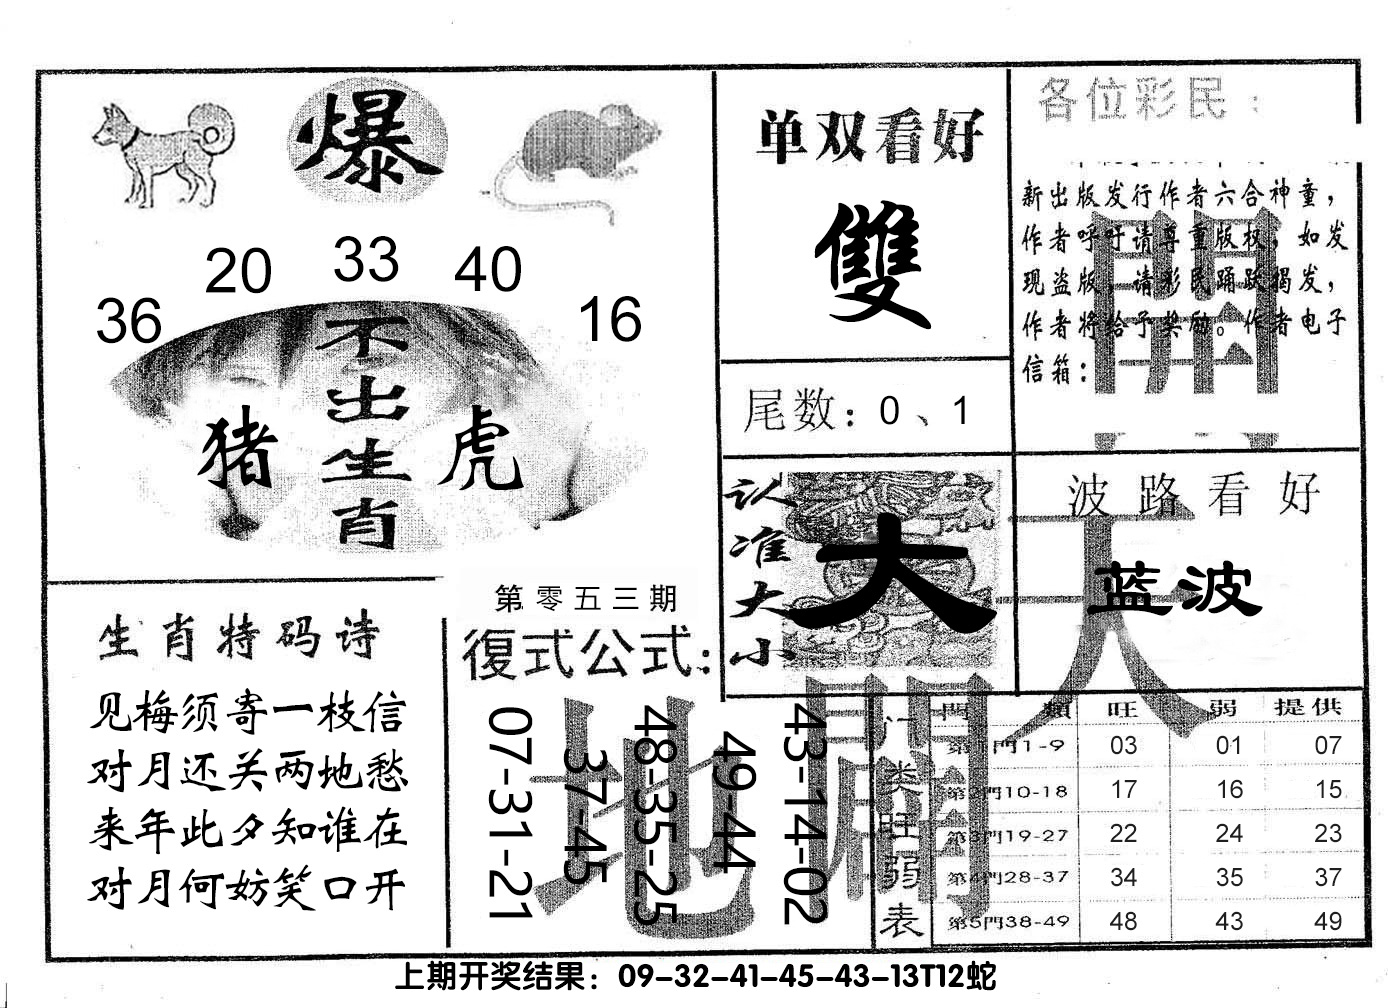 爆
36
20
33
40
16
不出生肖
猪
虎
单双看好
雙
尾数：0、1
各位彩民：
新出版发行作者六合神童，
作者呼吁请尊重版权，如发
现盗版，请彩民踊跃揭发，
作者将给予奖励。作者电子
信箱：
開
认准大小
大
波路看好
蓝波
天
生肖特码诗
见梅须寄一枝信
对月还关两地愁
来年此夕知谁在
对月何妨笑口开
第零五三期
復式公式：
07-31-21
37-45
48-35-25
49-44
43-14-02
地
開
门类旺弱表
門類 旺 弱 提供
第1門1-9 03 01 07
第2門10-18 17 16 15
第3門19-27 22 24 23
第4門28-37 34 35 37
第5門38-49 48 43 49
上期开奖结果：09-32-41-45-43-13T12蛇